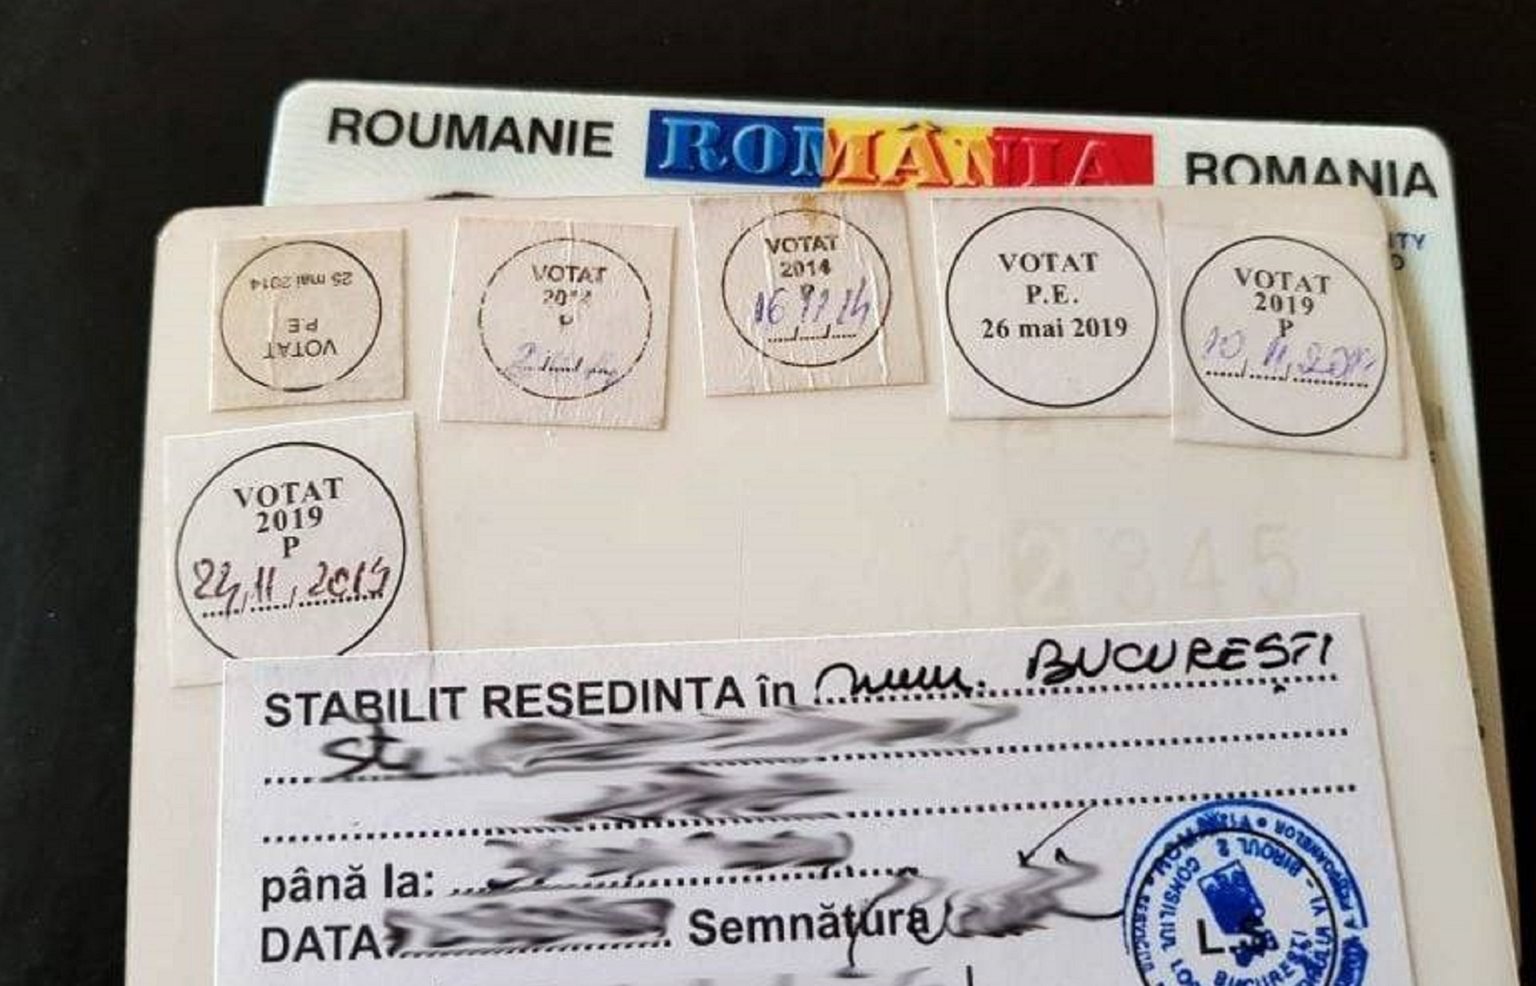 ROUMANIE ROMÂNIA ROMANIA
25 mai 2014
P.E
VOTAT
VOTAT
2014
P
VOTAT
2014
P
16 11 14
VOTAT
P.E.
26 mai 2019
VOTAT
2019
P
10, 11, 2019
VOTAT
2019
P
24, 11, 2019
12345
STABILIT RESEDINTA în mun. BUCUREȘTI
str
până la:
DATA Semnătura
BIROUL 2
CONSILIUL LOCAL
L.S.
BUCUREȘTI